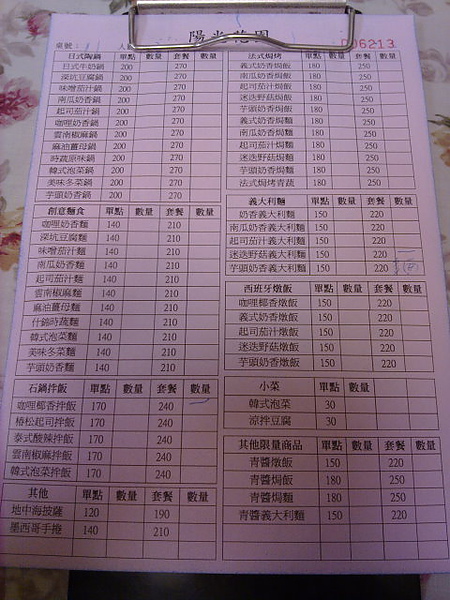 陽光花園
桌號：
D06213
日式陶鍋 單點 數量 套餐 數量
日式牛奶鍋 200 270
深坑豆腐鍋 200 270
味噌茄汁鍋 200 270
南瓜奶香鍋 200 270
起司茄汁鍋 200 270
咖哩奶香鍋 200 270
雲南椒麻鍋 200 270
麻油薑母鍋 200 270
時蔬原味鍋 200 270
韓式泡菜鍋 200 270
美味冬菜鍋 200 270
芋頭奶香鍋 200 270
創意麵食 單點 數量 套餐 數量
咖哩奶香麵 140 210
深坑豆腐麵 140 210
味噌茄汁麵 140 210
南瓜奶香麵 140 210
起司茄汁麵 140 210
雲南椒麻麵 140 210
麻油薑母麵 140 210
什錦時蔬麵 140 210
韓式泡菜麵 140 210
美味冬菜麵 140 210
芋頭奶香麵 140 210
石鍋拌飯 單點 數量 套餐 數量
咖哩椰香拌飯 170 240
椿松起司拌飯 170 240
泰式酸辣拌飯 170 240
雲南椒麻拌飯 170 240
韓式泡菜拌飯 170 240
其他 單點 數量 套餐 數量
地中海披薩 120 190
墨西哥手捲 140 210
法式焗烤 單點 數量 套餐 數量
義式奶香焗飯 180 250
南瓜奶香焗飯 180 250
起司茄汁焗飯 180 250
迷迭野菇焗飯 180 250
芋頭奶香焗飯 180 250
義式奶香焗麵 180 250
南瓜奶香焗麵 180 250
起司茄汁焗麵 180 250
迷迭野菇焗麵 180 250
芋頭奶香焗麵 180 250
法式焗烤青蔬 180 250
義大利麵 單點 數量 套餐 數量
奶香義大利麵 150 220
南瓜奶香義大利麵 150 220
起司茄汁義大利麵 150 220
迷迭野菇義大利麵 150 220
芋頭奶香義大利麵 150 220
西班牙燉飯 單點 數量 套餐 數量
咖哩椰香燉飯 150 220
義式奶香燉飯 150 220
起司茄汁燉飯 150 220
迷迭野菇燉飯 150 220
芋頭奶香燉飯 150 220
小菜 單點 數量
韓式泡菜 30
涼拌豆腐 30
其他限量商品 單點 數量 套餐 數量
青醬燉飯 150 220
青醬焗飯 180 250
青醬焗麵 180 250
青醬義大利麵 150 220